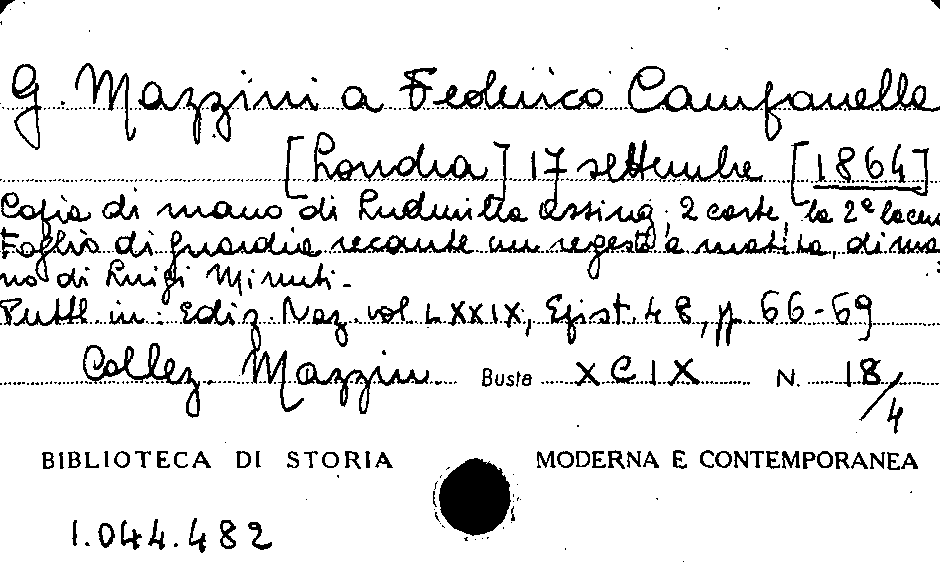 G. Mazzini a Federico Campanella
[Londra] 17 settembre [1864]
Copia di mano di Ludmilla Assing. 2 carte, la 2ª lacera
Foglio di guardia recante un regesto a matita, di ma
no di Luigi Minuti.
Pubbl. in: Ediz. Naz. vol. LXXIX, Epist. 48, pp. 66-69
Collez. Mazzin. Busta XCIX N. 18/4
BIBLIOTECA DI STORIA MODERNA E CONTEMPORANEA
1.044.482